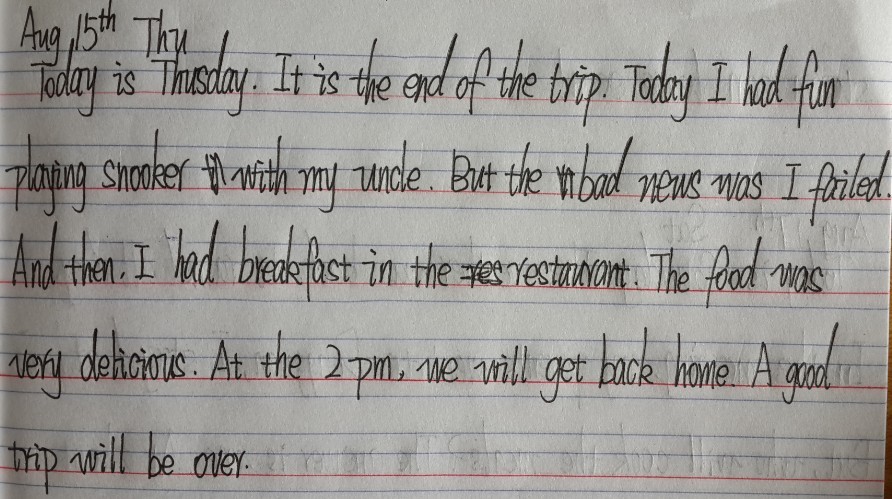 Aug 15th Thu
Today is Thusday. It is the end of the trip. Today I had fun
playing snooker with my uncle. But the bad news was I failed.
And then. I had breakfast in the restaurant. The food was
very delicious. At the 2 pm, we will get back home. A good
trip will be over.